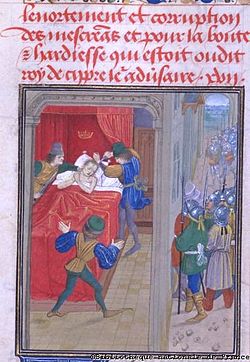 lenortement et corruption
des mescreãs et pour la bonte
& hardiesse qui estoit oudit
roy de cippre
©Bibliothèque nationale de France